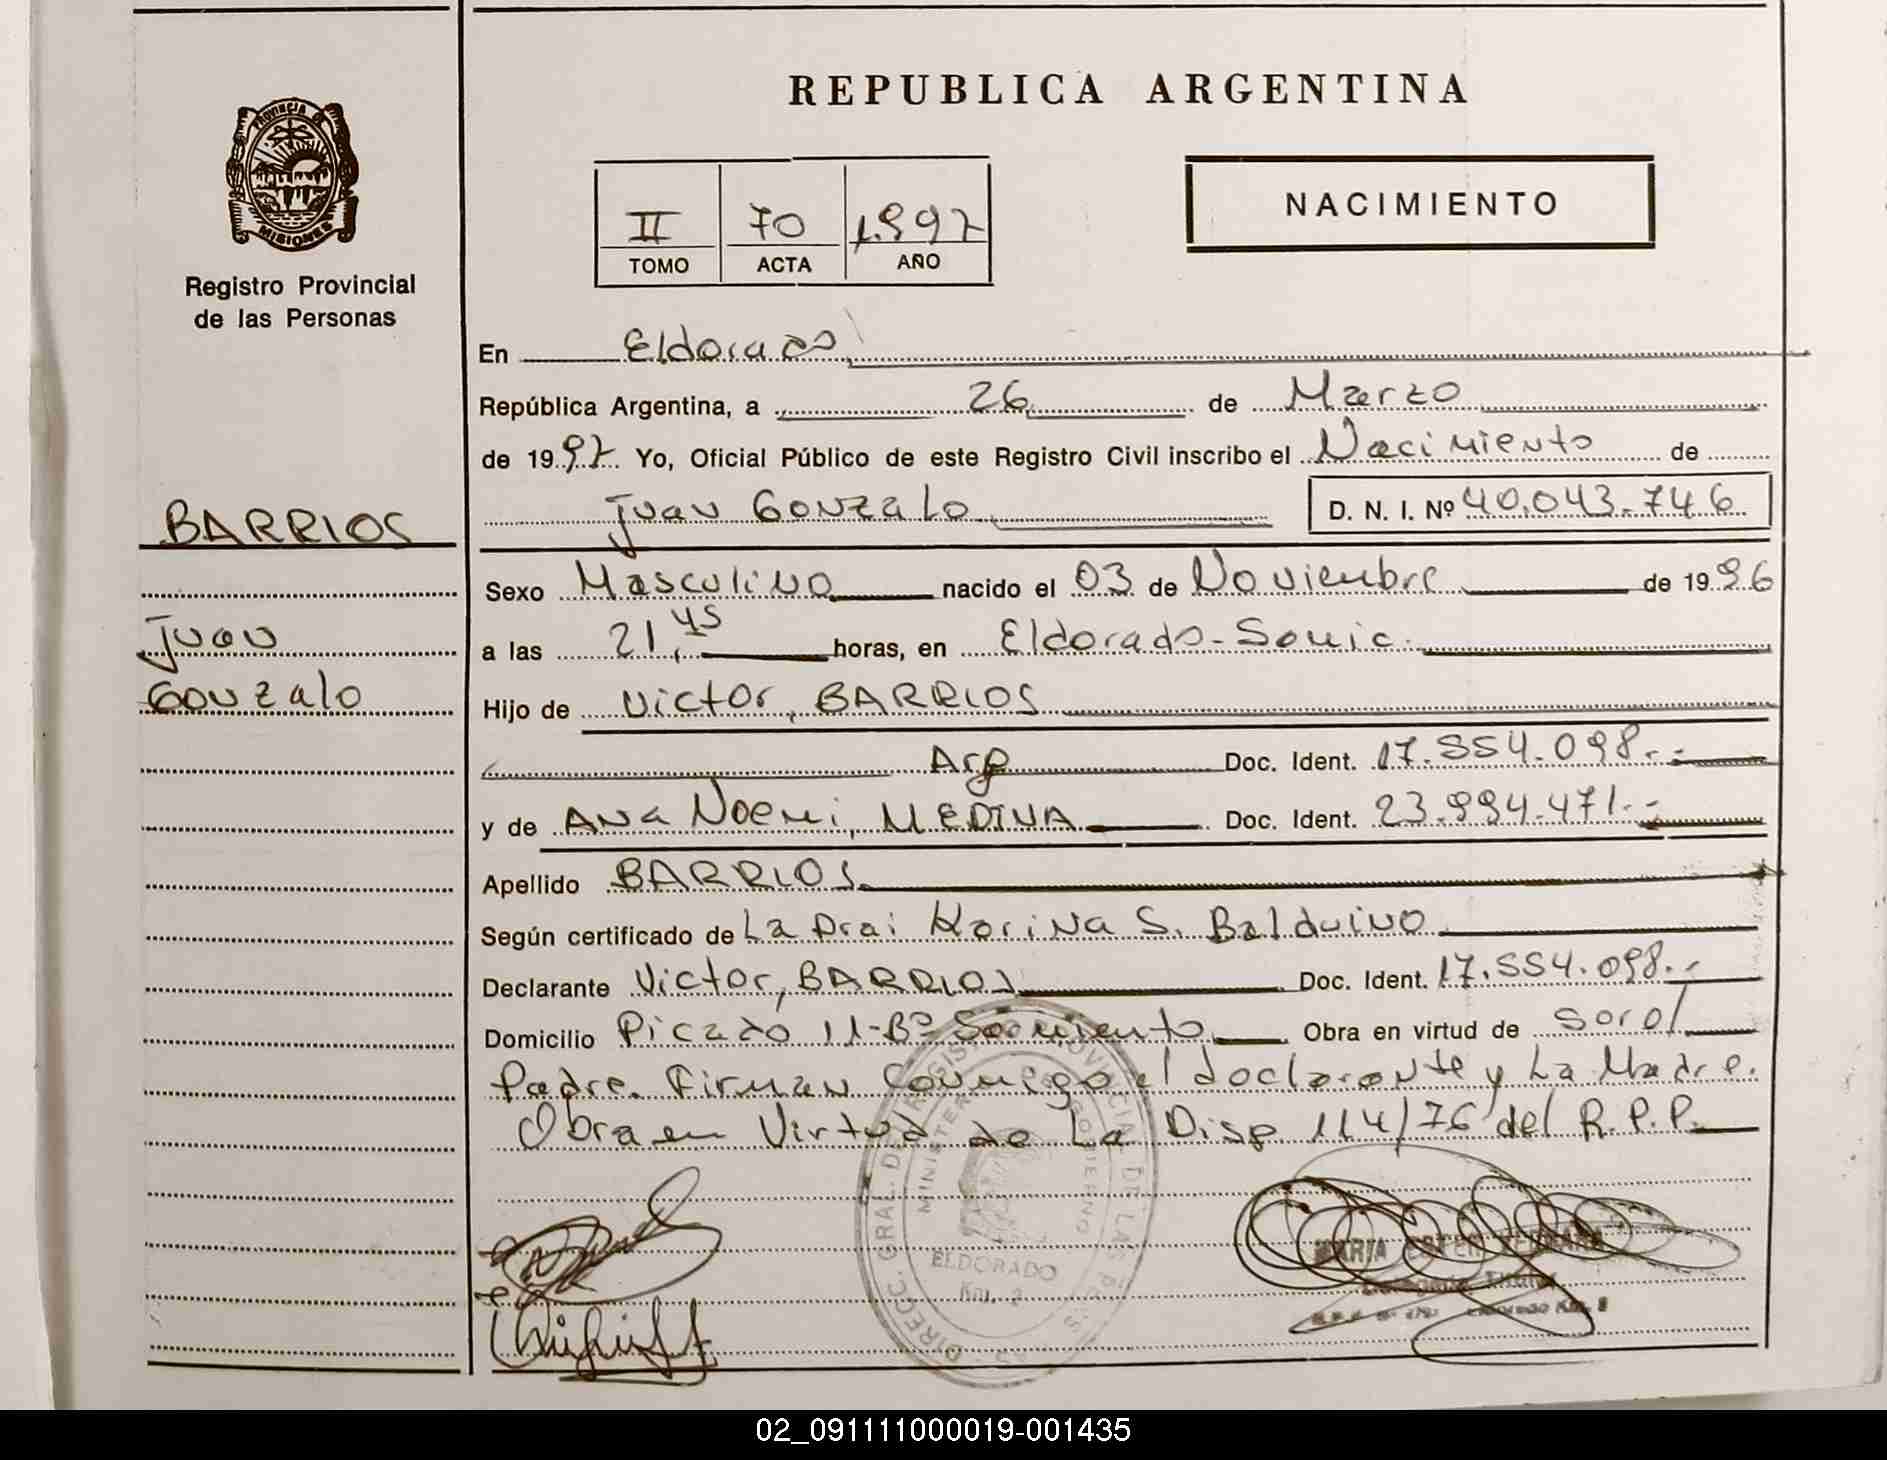 REPUBLICA ARGENTINA
PROVINCIA DE
MISIONES
Registro Provincial
de las Personas
II 70 1.997
TOMO ACTA AÑO
NACIMIENTO
En Eldorado
República Argentina, a 26 de Marzo
de 1997 Yo, Oficial Público de este Registro Civil inscribo el Nacimiento de
Juan Gonzalo D. N. I. Nº 40.043.746
BARRIOS
Juan
Gonzalo
Sexo Masculino nacido el 03 de Noviembre de 1996
a las 21,45 horas, en Eldorado-
Hijo de Victor, BARRIOS
Arg Doc. Ident. 17.554.098.-
y de Ana Noemi, MEDINA Doc. Ident. 23.994.471.-
Apellido BARRIOS
Según certificado de La Dra: Karina S. Balduino
Declarante Victor, BARRIOS Doc. Ident. 17.554.098.-
Domicilio Picada 11-Bº Sarmiento Obra en virtud de ser el
Padre. Firman Conmigo el declarante y La Madre.
Obra en Virtud de La Disp 114/76 del R.P.P.
DIRECC. GRAL. DEL REGISTRO PROVINCIAL DE LAS PERS.
MINISTERIO DE GOBIERNO
ELDORADO
Km. 2
MARIA ESTER
02_091111000019-001435